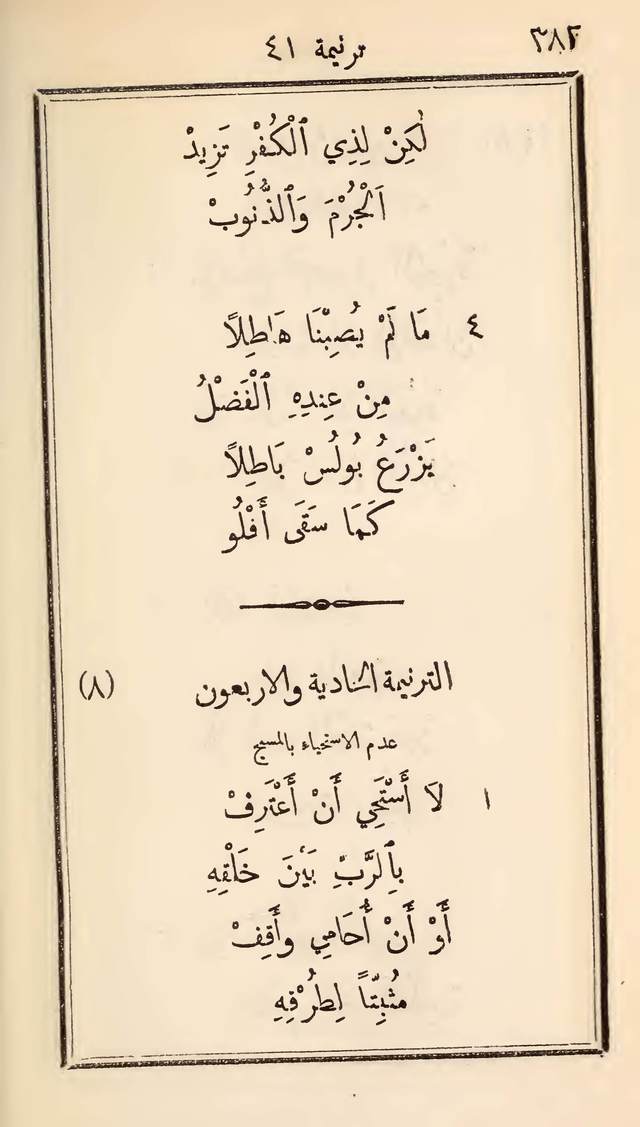 ٣٨٢
ترنيمة ٤١
لٰكِنْ لِذِي ٱلْكُفْرِ تَزِيدْ
اَلْجُرْمَ وَٱلذُّنُوبْ
٤ مَا لَمْ يُصِبْنَا هَاطِلًا
مِنْ عِندِهِ ٱلْفَضْلُ
يَزْرَعُ بُولُسْ بَاطِلًا
كَمَا سَقَى أَفْلُو
الترنيمة الحادية والاربعون (٨)
عدم الاستحياء بالمسيح
١ لَا أَسْتَحِي أَنْ أَعْتَرِفْ
بِٱلرَّبِّ بَيْنَ خَلْقِهِ
أَوْ أَنْ أُحَامِي وأَقِفْ
مُثبِتّاً لِطُرْقِهِ